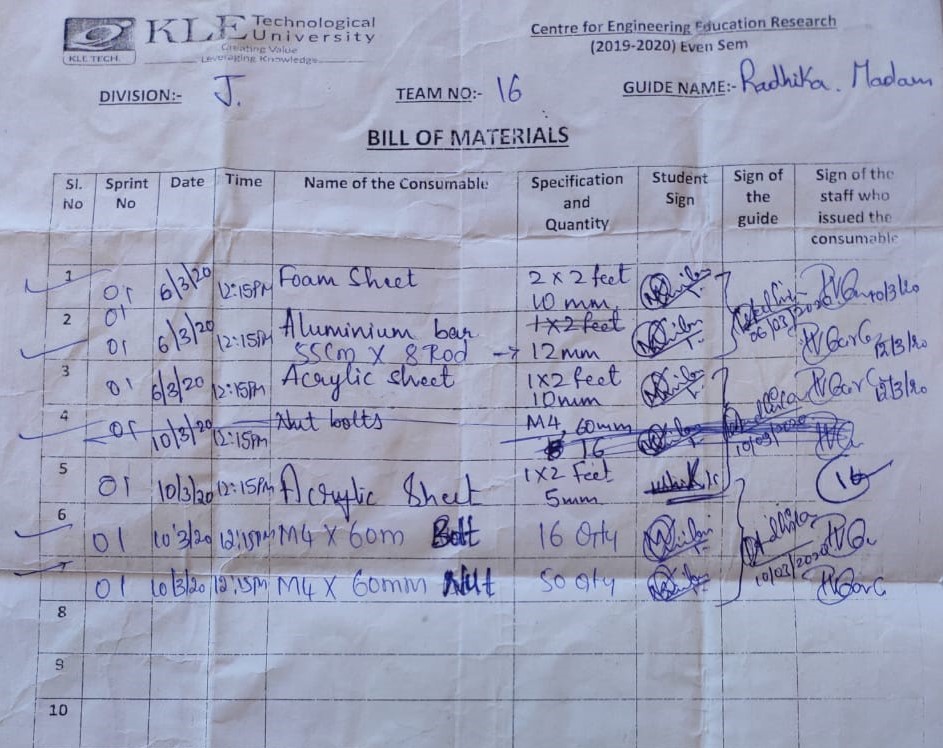 KLE Technological University
Creating Value
Leveraging Knowledge
KLE TECH.
Centre for Engineering Education Research
(2019-2020) Even Sem
DIVISION:- J.
TEAM NO:- 16
GUIDE NAME:- Radhika. Madam
BILL OF MATERIALS
Sl. No Sprint No Date Time Name of the Consumable Specification and Quantity Student Sign Sign of the guide Sign of the staff who issued the consumable
1 01 6/3/20 12:15PM Foam Sheet 2 x 2 feet
10 mm 10/3/20
2 01
01 6/3/20 12:15PM Aluminium bar 1x2 feet 06/03/2020
55cm X 8 Rod → 12mm 12/3/20
3 01 6/3/20 12:15PM Acrylic sheet 1x2 feet
10mm 12/3/20
4 01 10/3/20 12:15PM Nut bolts M4, 60mm
16 10/03/2020
5 01 10/3/20 12:15PM Acrylic Sheet 1x2 Feet
5mm 16
6 01 10/3/20 12:15PM M4 X 60m Bolt 16 Qty
01 10/3/20 12:15PM M4 X 60mm Nut 50 Qty 10/03/2020
8
9
10